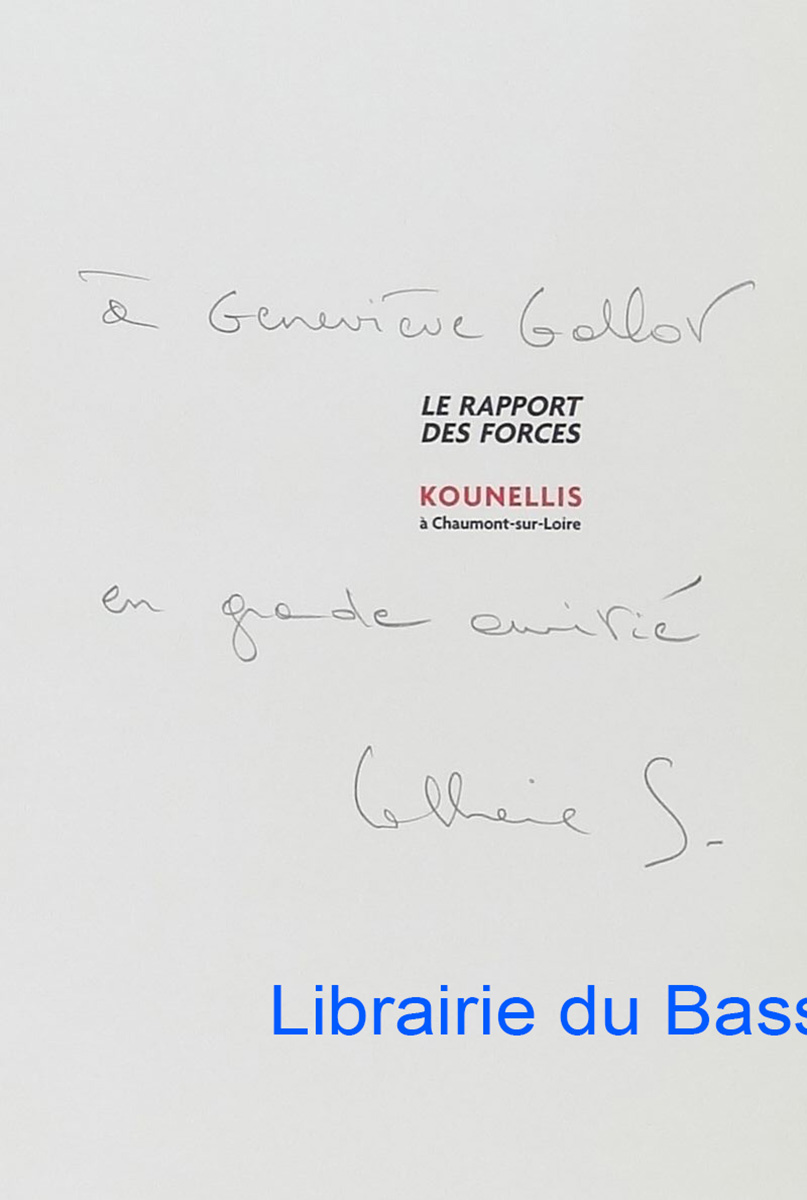 à Geneviève Gallot
LE RAPPORT
DES FORCES
KOUNELLIS
à Chaumont-sur-Loire
en grande amitié
S.
Librairie du Bass